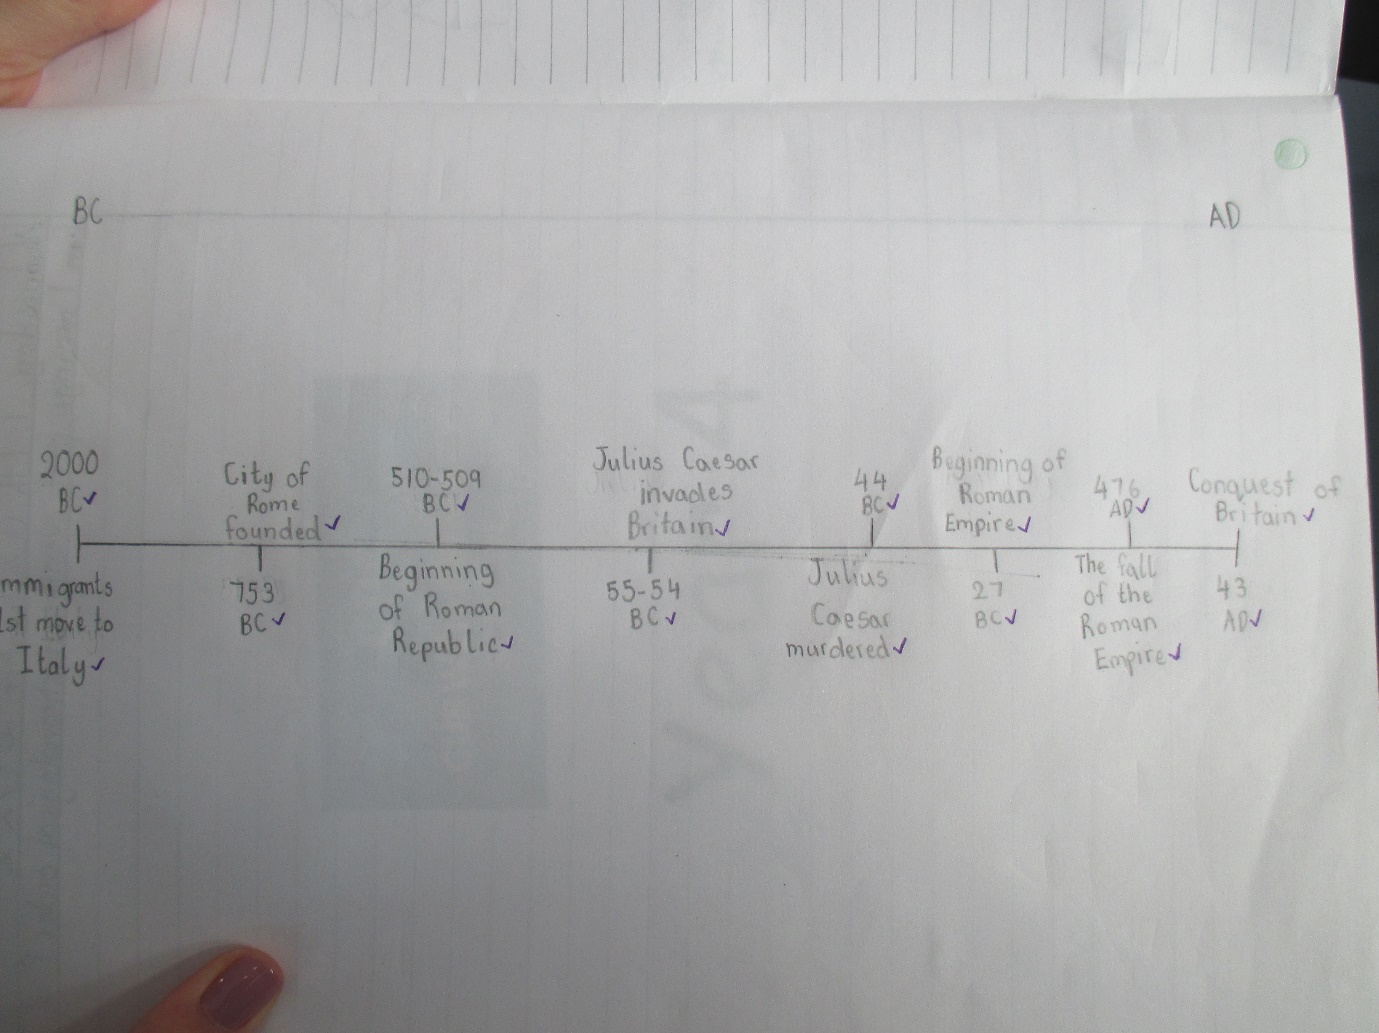 BC
AD
2000
BC
mmigrants
1st move to
Italy
City of
Rome
founded
753
BC
510-509
BC
Beginning
of Roman
Republic
Julius Caesar
invades
Britain
55-54
BC
44
BC
Julius
Caesar
murdered
Beginning of
Roman
Empire
27
BC
476
AD
The fall
of the
Roman
Empire
Conquest of
Britain
43
AD